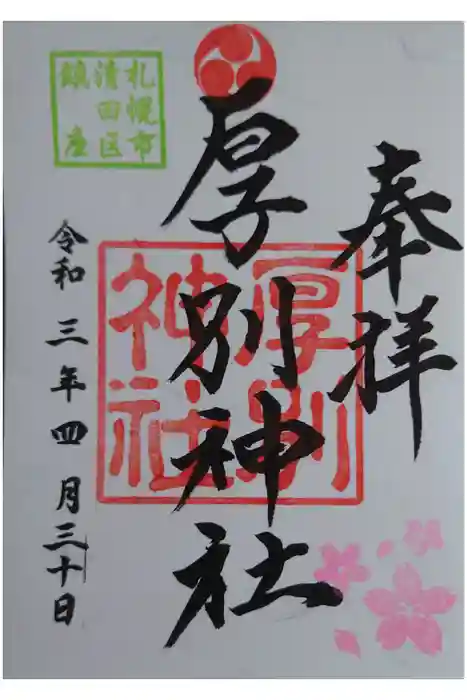 奉拝
厚別神社
厚別
神社
札幌市
清田区
鎮座
令和三年四月三十日